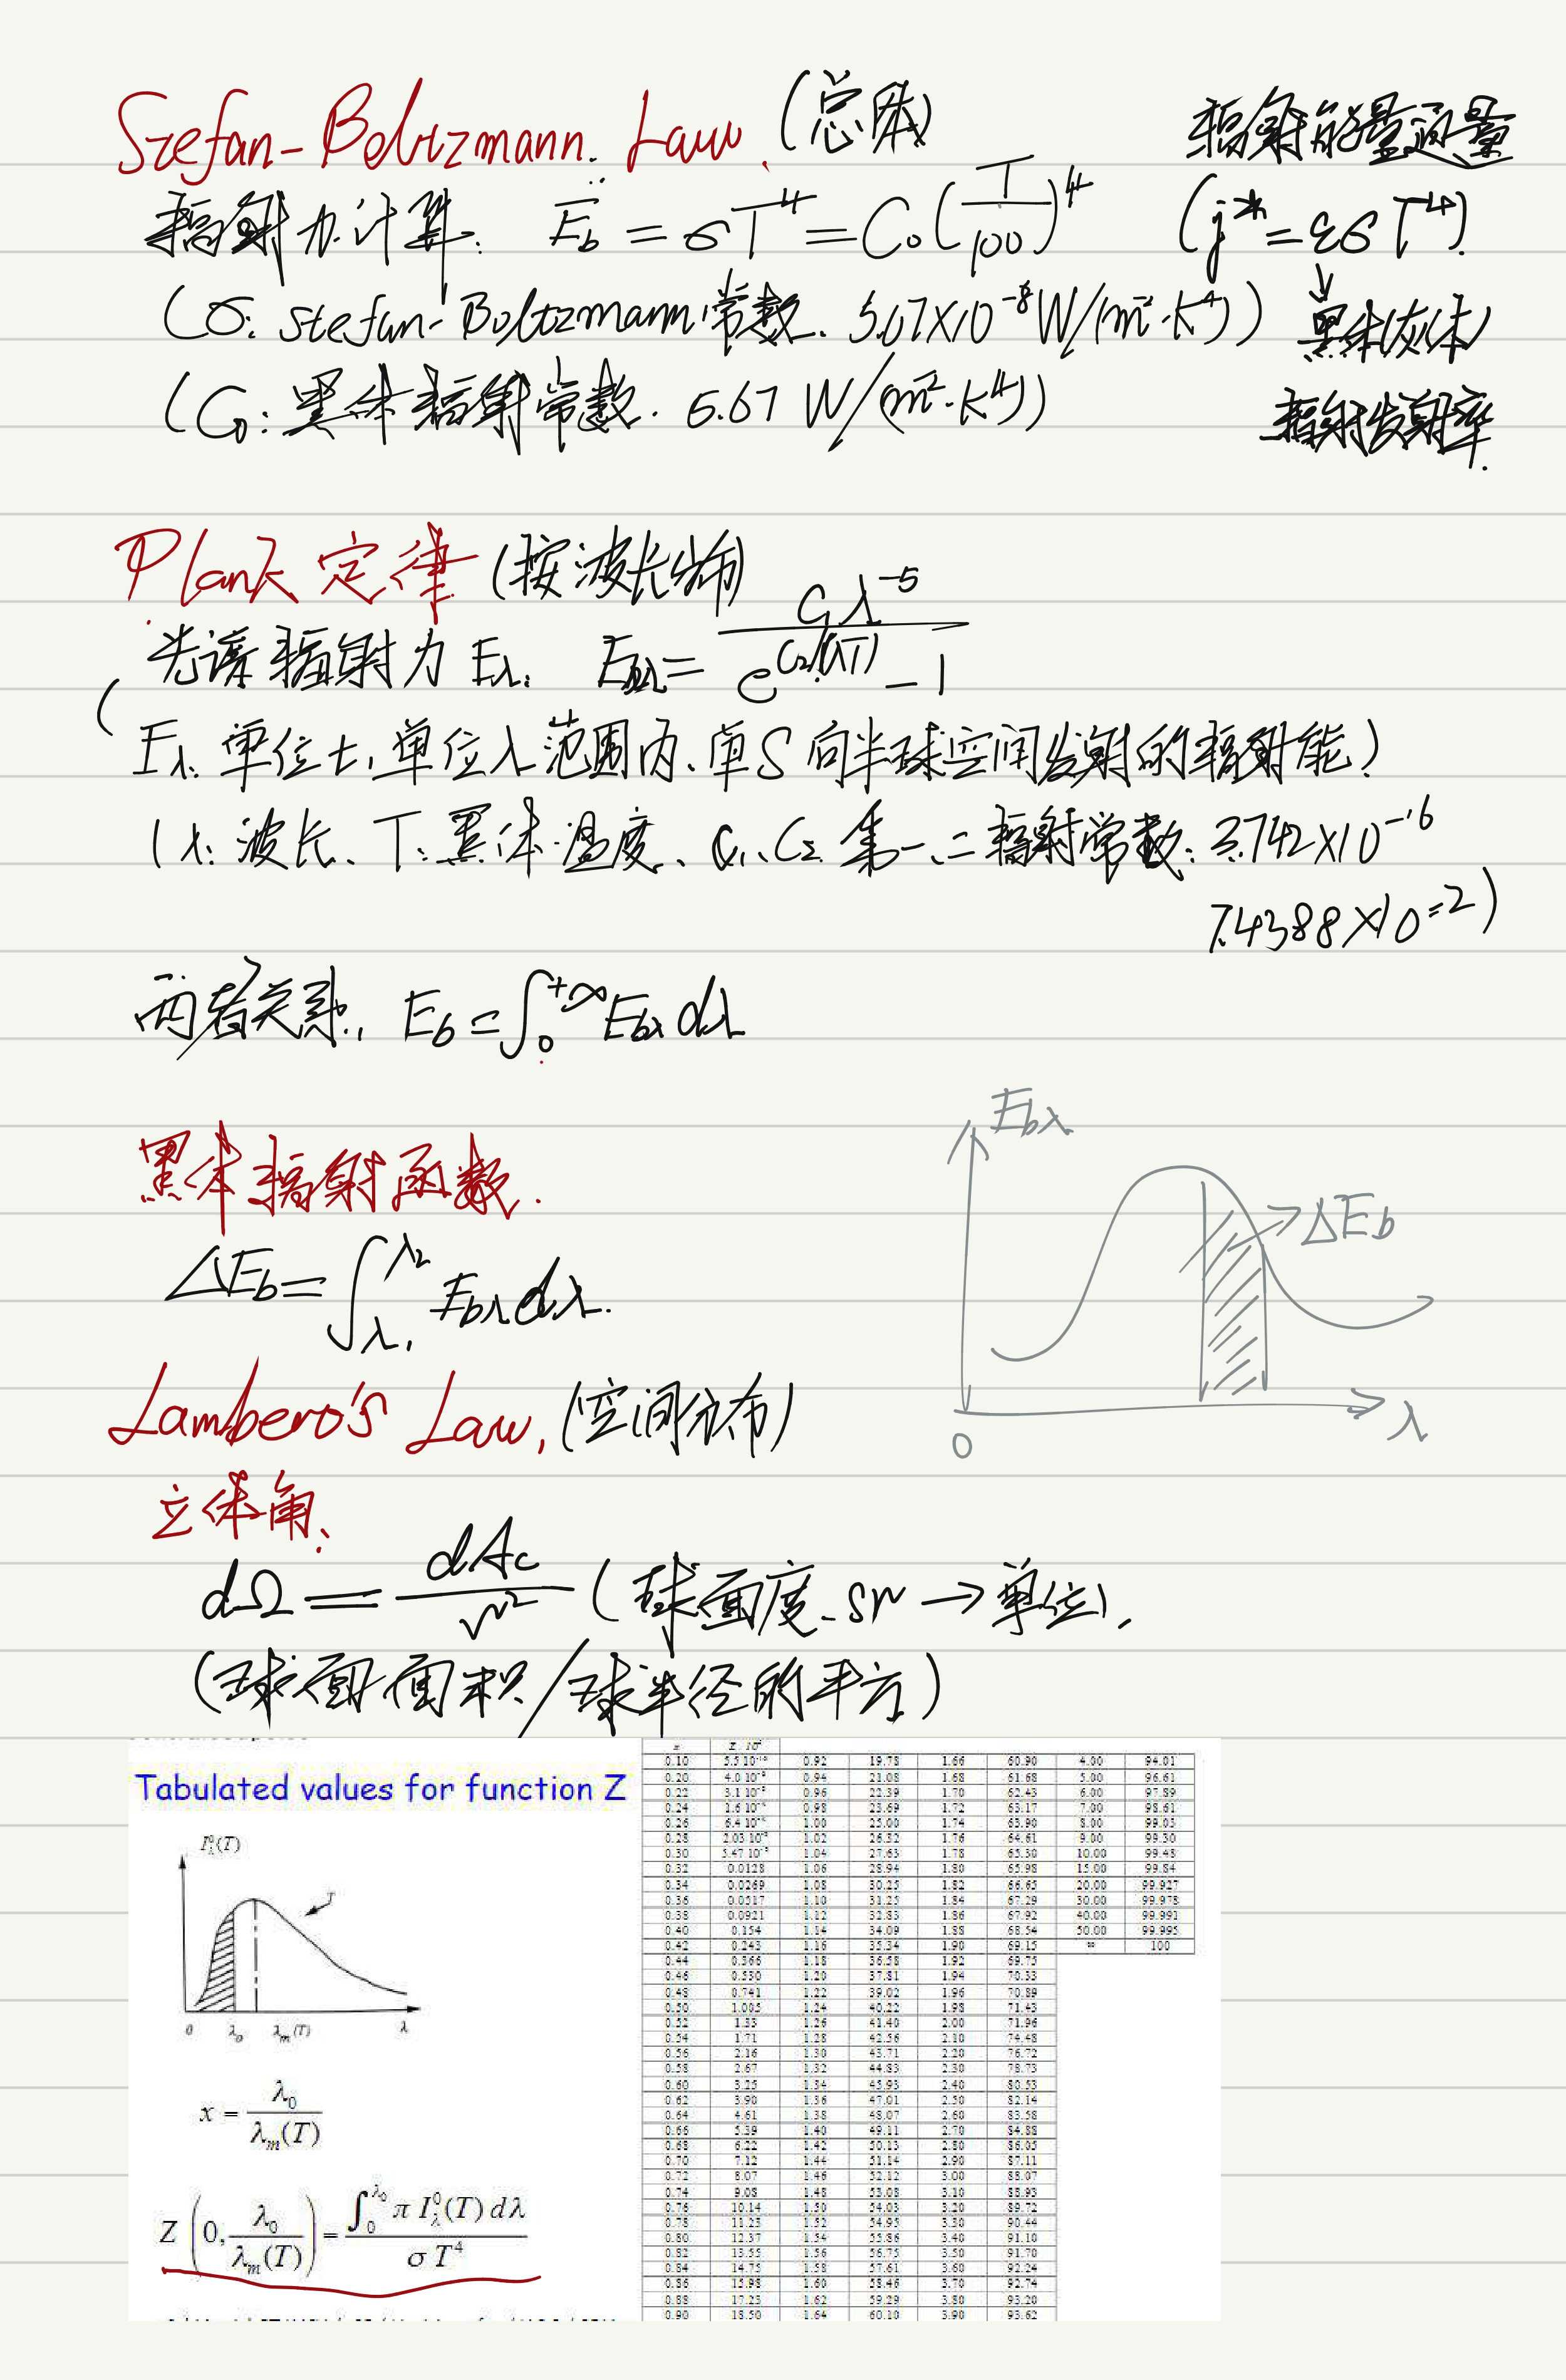 Stefan-Boltzmann. Law. (总体)
辐射能量通量
辐射力计算: E_b = σT^4 = C_0 (T/100)^4
(j* = εσT^4)
(σ: Stefan-Boltzmann 常数. 5.67×10^-8 W/(m^2·K^4))
↓
黑体(灰体)
辐射发射率.
(C_0: 黑体辐射常数. 5.67 W/(m^2·K^4))
Plank 定律 (按波长分布)
光谱辐射力 E_λ. E_bλ = C_1λ^-5 / (e^{C_2/(λT)} - 1)
(E_λ: 单位t, 单位λ范围内、单S向半球空间发射的辐射能)
(λ: 波长、T: 黑体温度、C_1、C_2 第一、二辐射常数: 3.742×10^-16
1.4388×10^-2)
两者关系. E_b = ∫_0^{+∞} E_bλ dλ
黑体辐射函数.
ΔE_b = ∫_{λ_1}^{λ_2} E_bλ dλ.
E_bλ
→ΔE_b
0
λ
Lambert's Law. (空间分布)
立体角:
dΩ = dA_c / r^2 (球面度. sr → 单位).
(球面面积/球半径的平方)
Tabulated values for function Z
I_λ^0(T)
T
0 λ_0 λ_m(T) λ
x = λ_0 / λ_m(T)
Z (0, λ_0 / λ_m(T)) = ∫_0^{λ_0} π I_λ^0(T) dλ / σ T^4
0.10 0.92 19.78 1.66 60.90 4.00 94.01
0.20 0.94 21.08 1.68 61.68 5.00 96.61
0.22 0.96 22.39 1.70 62.43 6.00 97.89
0.24 0.98 23.69 1.72 63.17 7.00 98.61
0.26 1.00 25.00 1.74 63.90 8.00 99.03
0.28 1.02 26.32 1.76 64.61 9.00 99.30
0.30 1.04 27.63 1.78 65.30 10.00 99.48
0.32 0.0128 1.06 28.94 1.80 65.98 15.00 99.84
0.34 0.0269 1.08 30.25 1.82 66.65 20.00 99.927
0.36 0.0517 1.10 31.25 1.84 67.29 30.00 99.978
0.38 0.0921 1.12 32.83 1.86 67.92 40.00 99.991
0.40 0.154 1.14 34.09 1.88 68.54 50.00 99.995
0.42 0.243 1.16 35.34 1.90 69.15 ∞ 100
0.44 0.366 1.18 36.58 1.92 69.75
0.46 0.530 1.20 37.81 1.94 70.33
0.48 0.741 1.22 39.02 1.96 70.89
0.50 1.005 1.24 40.22 1.98 71.43
0.52 1.33 1.26 41.40 2.00 71.96
0.54 1.71 1.28 42.56 2.10 74.48
0.56 2.16 1.30 43.71 2.20 76.72
0.58 2.67 1.32 44.83 2.30 78.73
0.60 3.25 1.34 45.93 2.40 80.53
0.62 3.90 1.36 47.01 2.50 82.14
0.64 4.61 1.38 48.07 2.60 83.58
0.66 5.39 1.40 49.11 2.70 84.88
0.68 6.22 1.42 50.13 2.80 86.05
0.70 7.12 1.44 51.14 2.90 87.11
0.72 8.07 1.46 52.12 3.00 88.07
0.74 9.08 1.48 53.08 3.10 88.93
0.76 10.14 1.50 54.03 3.20 89.72
0.78 11.25 1.52 54.95 3.30 90.44
0.80 12.37 1.54 55.86 3.40 91.10
0.82 13.55 1.56 56.75 3.50 91.70
0.84 14.75 1.58 57.61 3.60 92.24
0.86 15.98 1.60 58.46 3.70 92.74
0.88 17.23 1.62 59.29 3.80 93.20
0.90 18.50 1.64 60.10 3.90 93.62